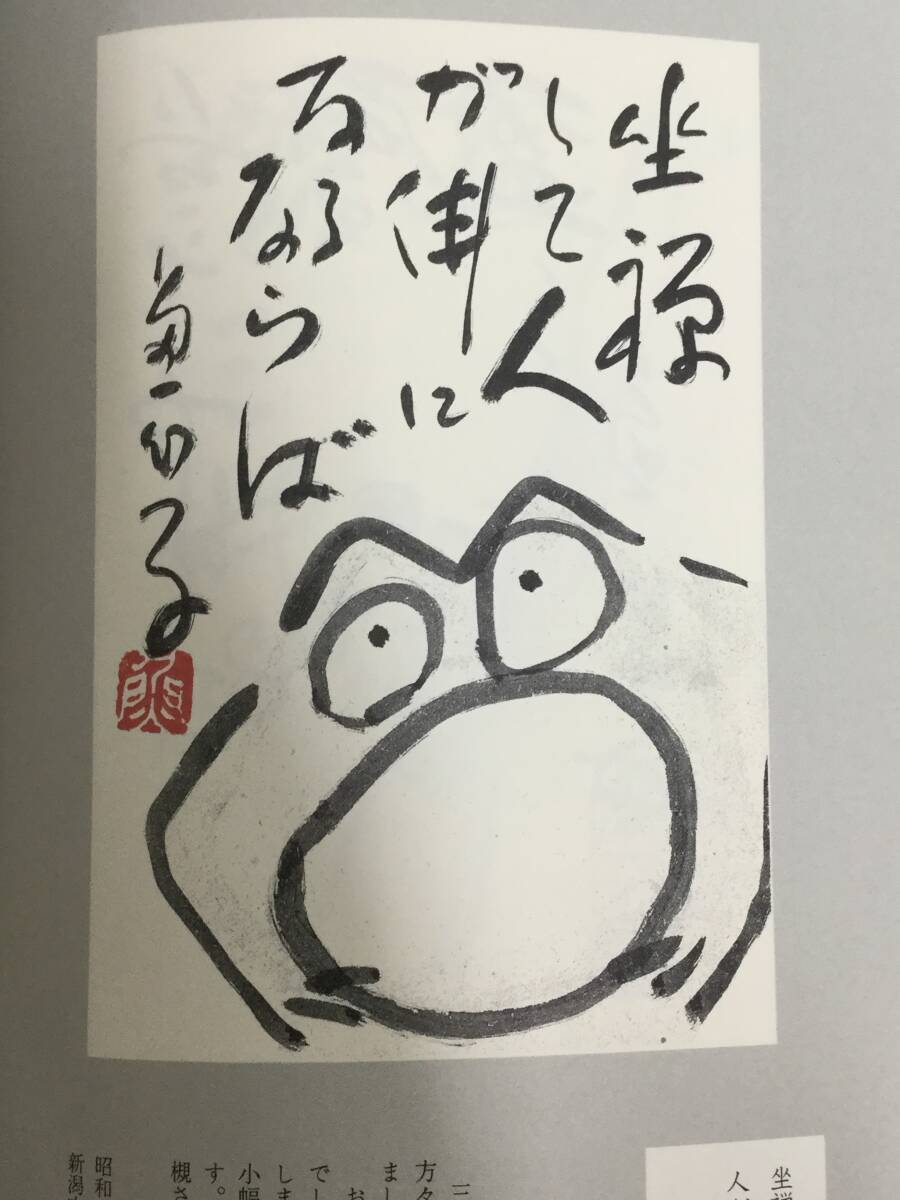 坐禅
して人
が佛に
なるならば
坐禅
人
三
方々
まし
お
でし
しま
小幅
す。
槻さ
昭和
新潟